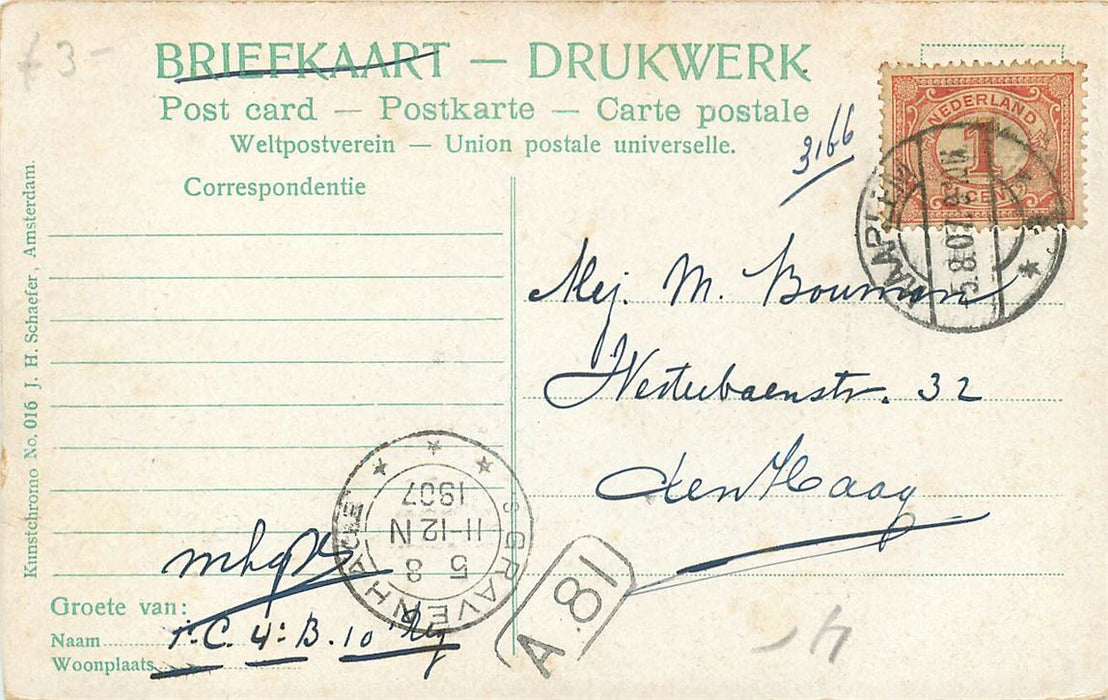 f 3 -
BRIEFKAART — DRUKWERK
Post card — Postkarte — Carte postale
Weltpostverein — Union postale universelle.
3166
NEDERLAND
1
CENT
5.8.07
Correspondentie
Kunstchromo No. 016 J. H. Schaefer, Amsterdam.
Mej. M. Bouman
32
den Haag
'S GRAVENHAGE
5 8
11-12 N
1907
A.81
Groete van:
Naam
1e C. 4e B. 10
Woonplaats